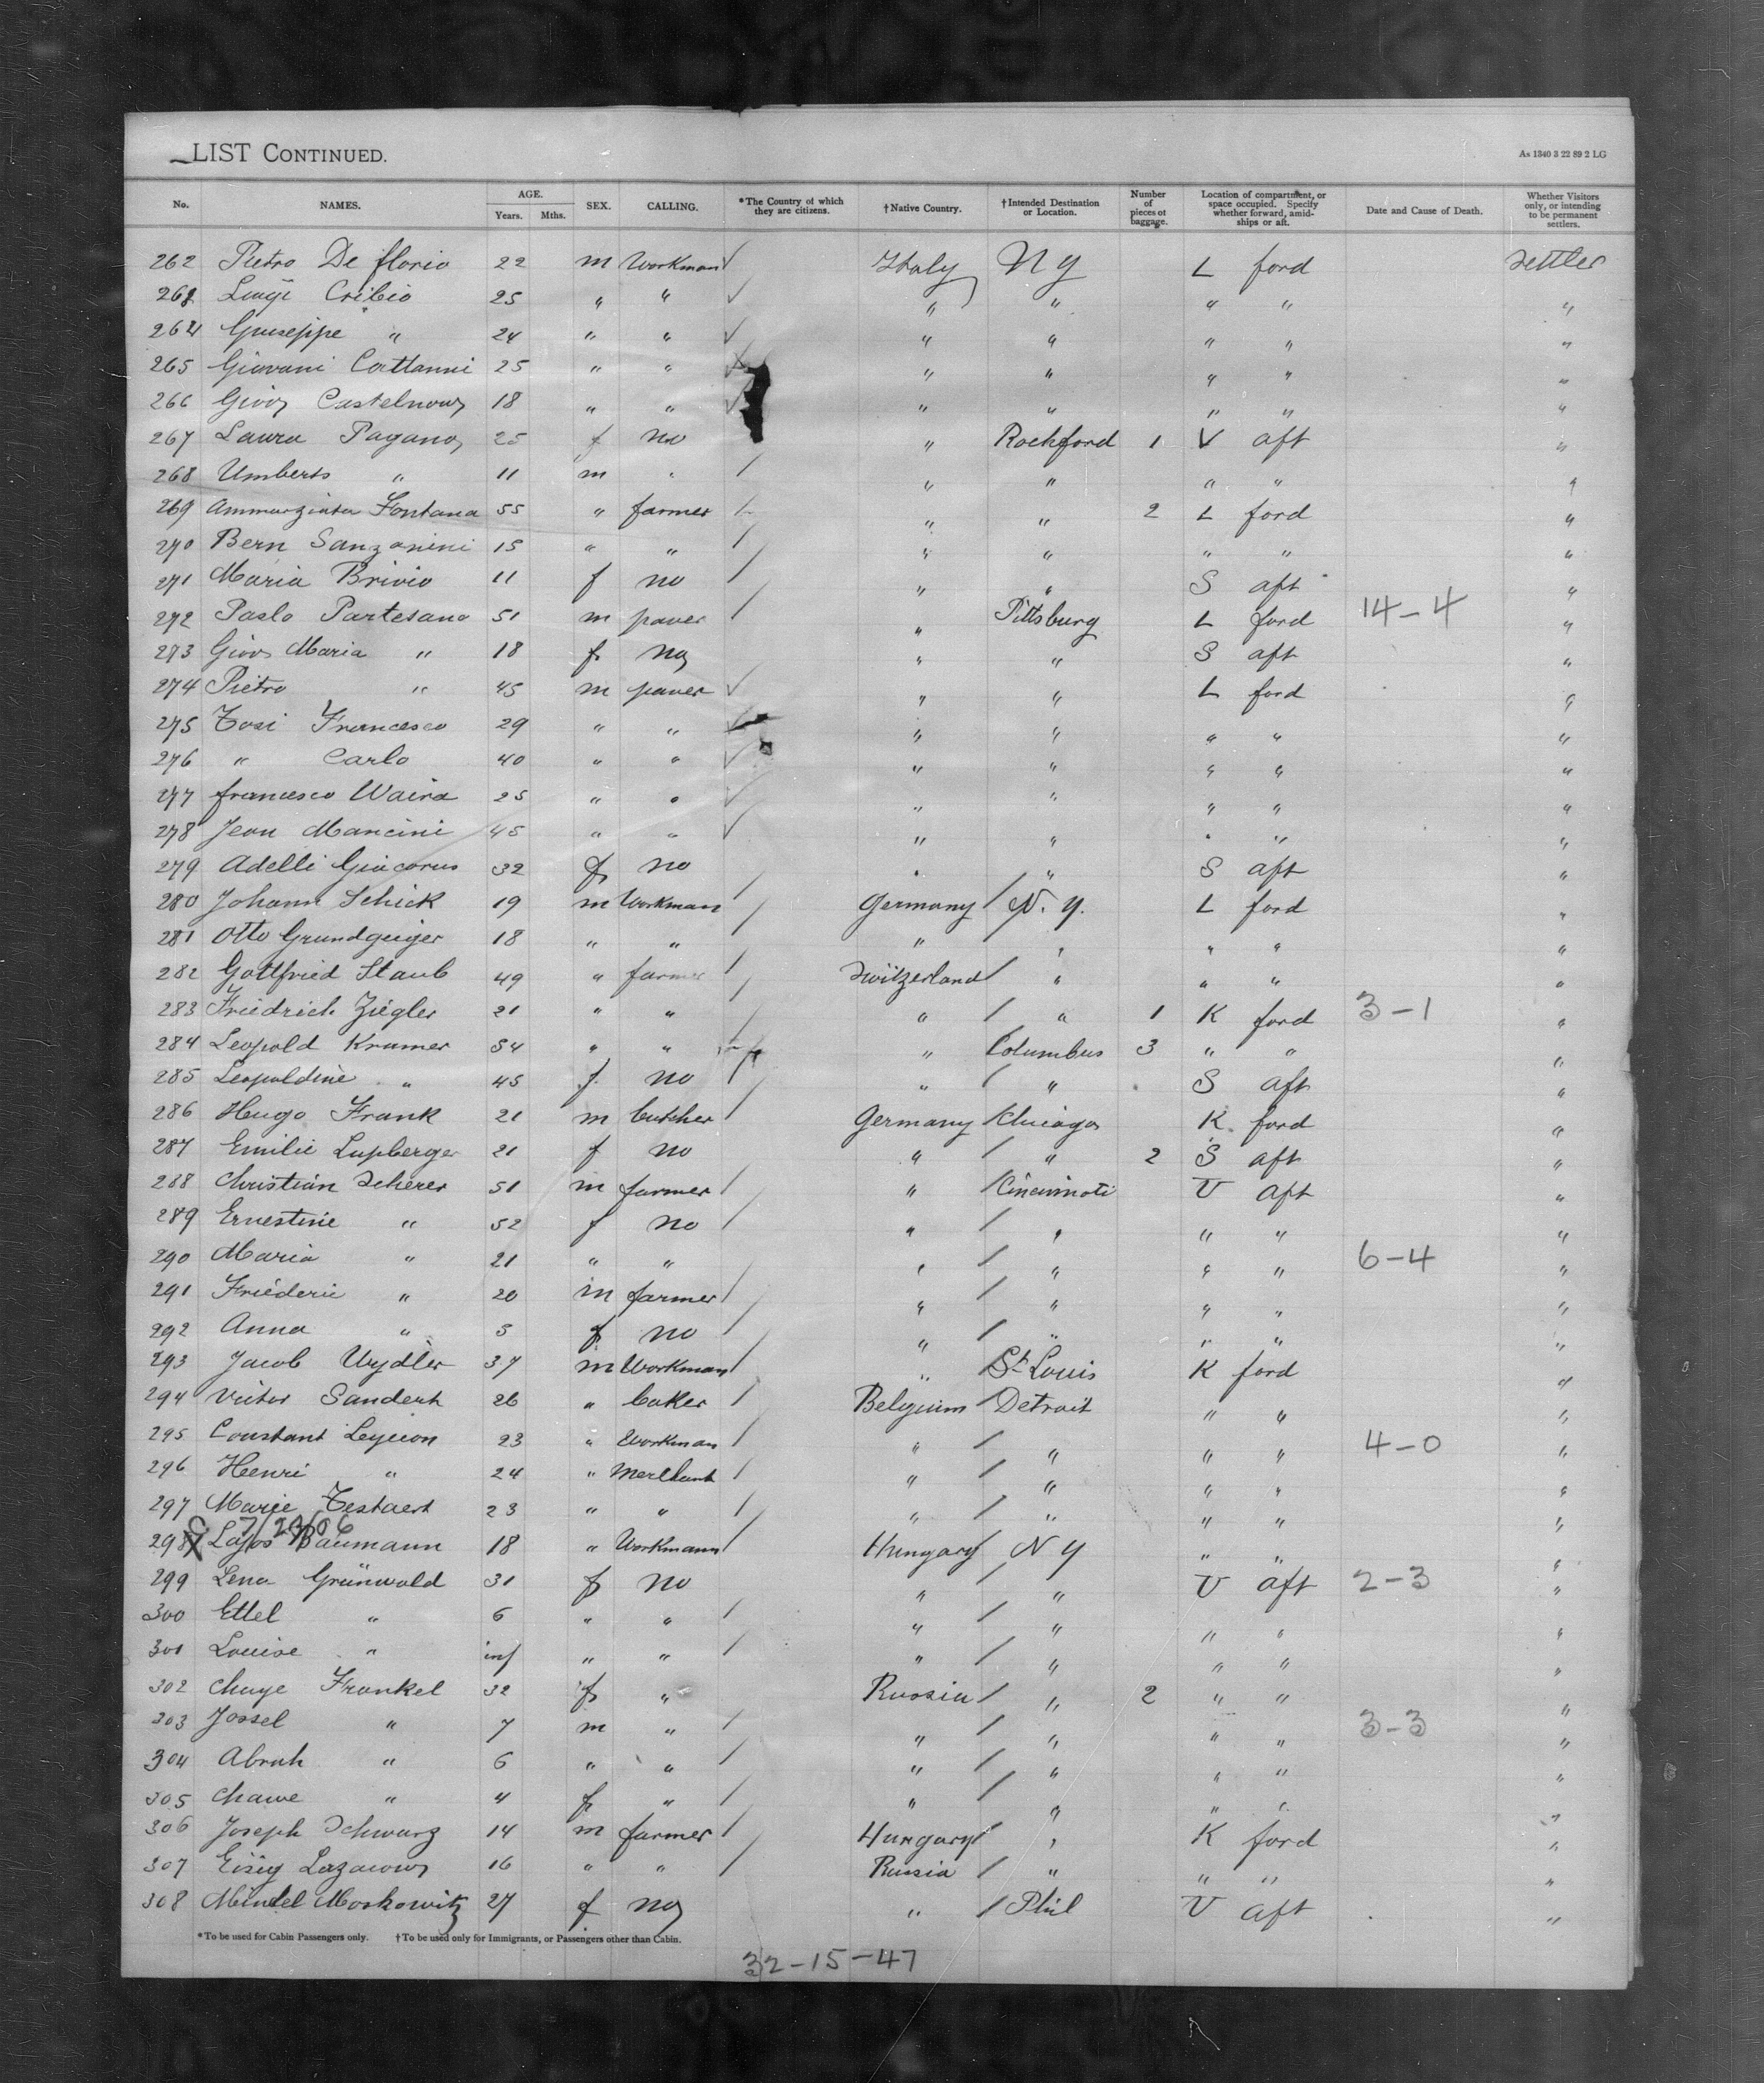 LIST CONTINUED.
As 1340 3 22 89 2 LG
No. NAMES. AGE. Years. Mths. SEX. CALLING. *The Country of which they are citizens. †Native Country. †Intended Destination or Location. Number of pieces of baggage. Location of compartment, or space occupied. Specify whether forward, amidships or aft. Date and Cause of Death. Whether Visitors only, or intending to be permanent settlers.
262 Pietro De florio 22 m Workman Italy N y L ford settler
263 Luigi Cribio 25 " " " " " " "
264 Giuseppe " 24 " " " " " " "
265 Giovani Cattanni 25 " " " " " " "
266 Giov Castelnov 18 " " " " " " "
267 Laura Pagano 25 f no " Rockford 1 V aft "
268 Umberto " 11 m " " " " " "
269 Ammunziata Fontana 55 " farmer " " 2 L ford "
270 Bern Sanzonini 15 " " " " " " "
271 Maria Brivio 11 f no " " S aft "
272 Paolo Partesano 51 m paver " Pittsburg L ford 14-4 "
273 Giov Maria " 18 f no " " S aft "
274 Pietro " 45 m paver " " L ford "
275 Tosi Francesco 29 " " " " " " "
276 " Carlo 40 " " " " " " "
277 francesco Waira 25 " " " " " " "
278 Jean Mancini 45 " " " " " " "
279 Adelli Giacorus 32 f no " " S aft "
280 Johann Schick 19 m Workman Germany N. y. L ford "
281 Otto Grundgeiger 18 " " " " " " "
282 Gottfried Staub 49 " farmer Switzerland " " " "
283 Friedrich Ziegler 21 " " " " 1 K ford 3-1 "
284 Leopold Kramer 54 " " " Columbus 3 " " "
285 Leopoldine " 45 f no " " S aft "
286 Hugo Frank 21 m butcher Germany Chicago K ford "
287 Emilie Lupberger 21 f no " " 2 S aft "
288 Christian Scherer 51 m farmer " Cincinnati U aft "
289 Ernestine " 52 f no " " " " "
290 Maria " 21 " " " " " " 6-4 "
291 Friederic " 20 m farmer " " " " "
292 Anna " 3 f no " " " " "
293 Jacob Wydler 37 m Workman " St Louis K ford "
294 Victor Sanderh 26 " baker Belgium Detroit " " "
295 Constant Legeion 23 " Workman " " " " 4-0 "
296 Henri " 24 " Merchant " " " " "
297 Marie Testaert 23 " " " " " " "
C 7/24/06
298 X Lajos Baumann 18 " Workmann Hungary N y " " "
299 Lena Grünwald 31 f no " " U aft 2-3 "
300 Ettel " 6 " " " " " " "
301 Louise " inf " " " " " " "
302 Chaye Frankel 32 f " Russia " 2 " " "
303 Jossel " 7 m " " " " " 3-3 "
304 Abrah " 6 " " " " " " "
305 Chawe " 4 f " " " " " "
306 Joseph Schwarz 14 m farmer Hungary " K ford "
307 Eisig Lazarow 16 " " Russia " " " "
308 Mindel Moskowitz 27 f no " Phil U aft "
*To be used for Cabin Passengers only. †To be used only for Immigrants, or Passengers other than Cabin.
32-15-47